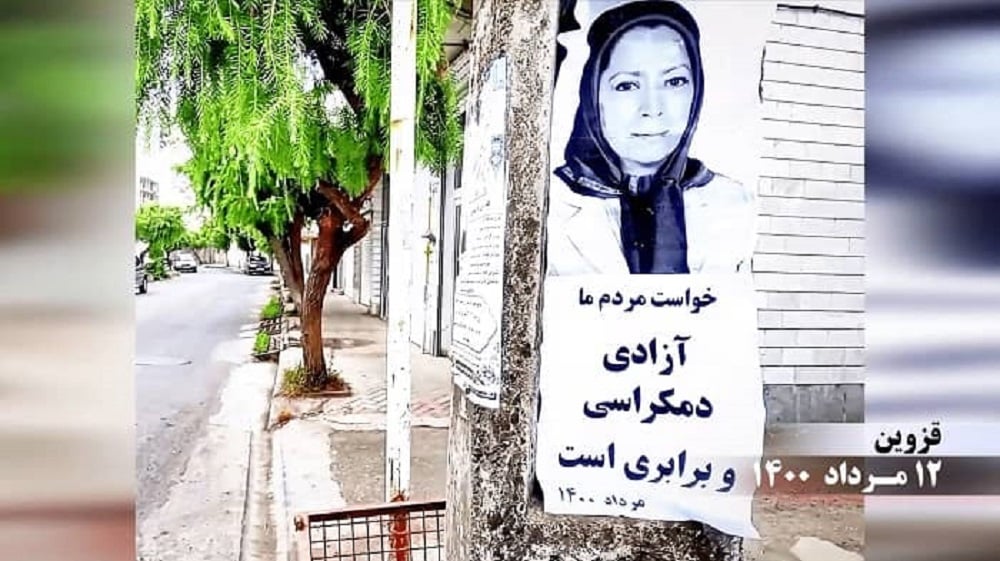 خواست مردم ما
آزادی
دمکراسی
و برابری است
مرداد ۱۴۰۰
قزوین
۱۲ مرداد ۱۴۰۰